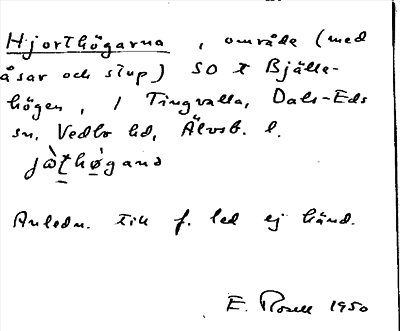 Hjorthögarna, område (med
åsar och stup) SO t Bjälle-
högen, / Tingvalla, Dals-Eds
sn, Vedbo hd, Älvsb. l.
jòthǿgana
Anledn. till f. led ej känd.
E. Rosell 1950